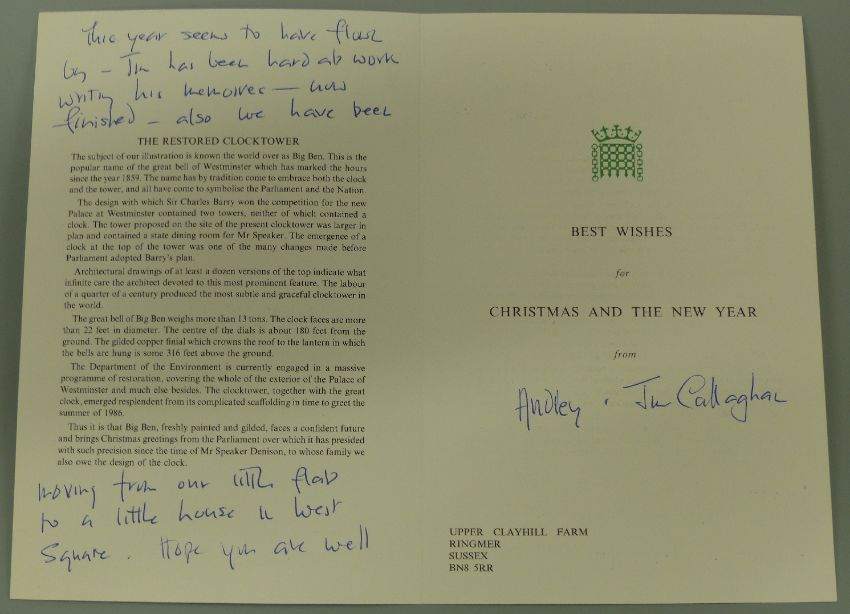 This year seems to have flown
by - Jim has been hard at work
writing his memoires - now
finished - also we have been
THE RESTORED CLOCKTOWER
The subject of our illustration is known the world over as Big Ben. This is the
popular name of the great bell of Westminster which has marked the hours
since the year 1859. The name has by tradition come to embrace both the clock
and the tower, and all have come to symbolise the Parliament and the Nation.
The design with which Sir Charles Barry won the competition for the new
Palace at Westminster contained two towers, neither of which contained a
clock. The tower proposed on the site of the present clocktower was larger in
plan and contained a state dining room for Mr Speaker. The emergence of a
clock at the top of the tower was one of the many changes made before
Parliament adopted Barry's plan.
Architectural drawings of at least a dozen versions of the top indicate what
infinite care the architect devoted to this most prominent feature. The labour
of a quarter of a century produced the most subtle and graceful clocktower in
the world.
The great bell of Big Ben weighs more than 13 tons. The clock faces are more
than 22 feet in diameter. The centre of the dials is about 180 feet from the
ground. The gilded copper finial which crowns the roof to the lantern in which
the bells are hung is some 316 feet above the ground.
The Department of the Environment is currently engaged in a massive
programme of restoration, covering the whole of the exterior of the Palace of
Westminster and much else besides. The clocktower, together with the great
clock, emerged resplendent from its complicated scaffolding in time to greet the
summer of 1986.
Thus it is that Big Ben, freshly painted and gilded, faces a confident future
and brings Christmas greetings from the Parliament over which it has presided
with such precision since the time of Mr Speaker Denison, to whose family we
also owe the design of the clock.
moving from our little flat
to a little house in West
Square. Hope you are well
BEST WISHES
for
CHRISTMAS AND THE NEW YEAR
from
Audrey . Jim Callaghan
UPPER CLAYHILL FARM
RINGMER
SUSSEX
BN8 5RR